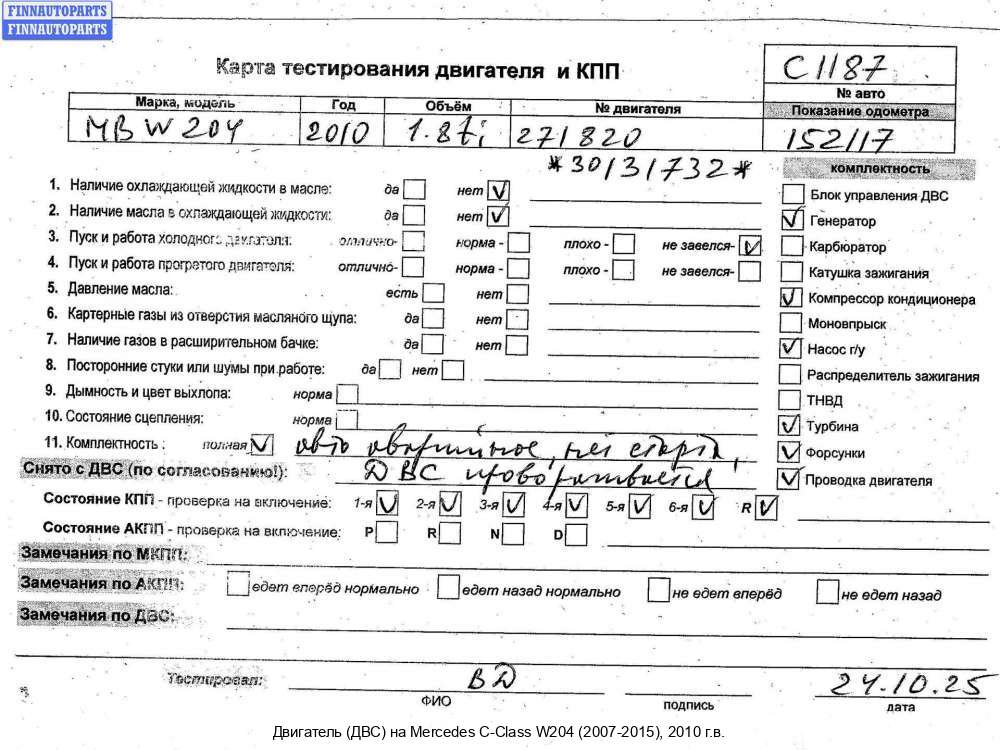 FINNAUTOPARTS
FINNAUTOPARTS
Карта тестирования двигателя и КПП
C1187
№ авто
Марка, модель Год Объём № двигателя Показание одометра
MB W204 2010 1.8Ti 271820 152117
*30131732*
комплектность
1. Наличие охлаждающей жидкости в масле: да нет V
Блок управления ДВС
2. Наличие масла в охлаждающей жидкости: да нет V
V Генератор
3. Пуск и работа холодного двигателя: отлично- норма - плохо - не завелся- V
Карбюратор
4. Пуск и работа прогретого двигателя: отлично- норма - плохо - не завелся-
Катушка зажигания
5. Давление масла: есть нет
V Компрессор кондиционера
6. Картерные газы из отверстия масляного щупа: да нет
Моновпрыск
7. Наличие газов в расширительном бачке: да нет
V Насос г/у
8. Посторонние стуки или шумы при работе: да нет
Распределитель зажигания
9. Дымность и цвет выхлопа: норма
ТНВД
10. Состояние сцепления: норма
V Турбина
11. Комплектность: полная V авто аварийное, нет старта,
V Форсунки
Снято с ДВС (по согласованию!): ДВС проворачивается
V Проводка двигателя
Состояние КПП - проверка на включение: 1-я V 2-я V 3-я V 4-я V 5-я V 6-я V R V
Состояние АКПП - проверка на включение: P R N D
Замечания по МКПП:
Замечания по АКПП: едет вперёд нормально едет назад нормально не едет вперёд не едет назад
Замечания по ДВС:
Тестировал: ВД 24.10.25
ФИО подпись дата
Двигатель (ДВС) на Mercedes C-Class W204 (2007-2015), 2010 г.в.